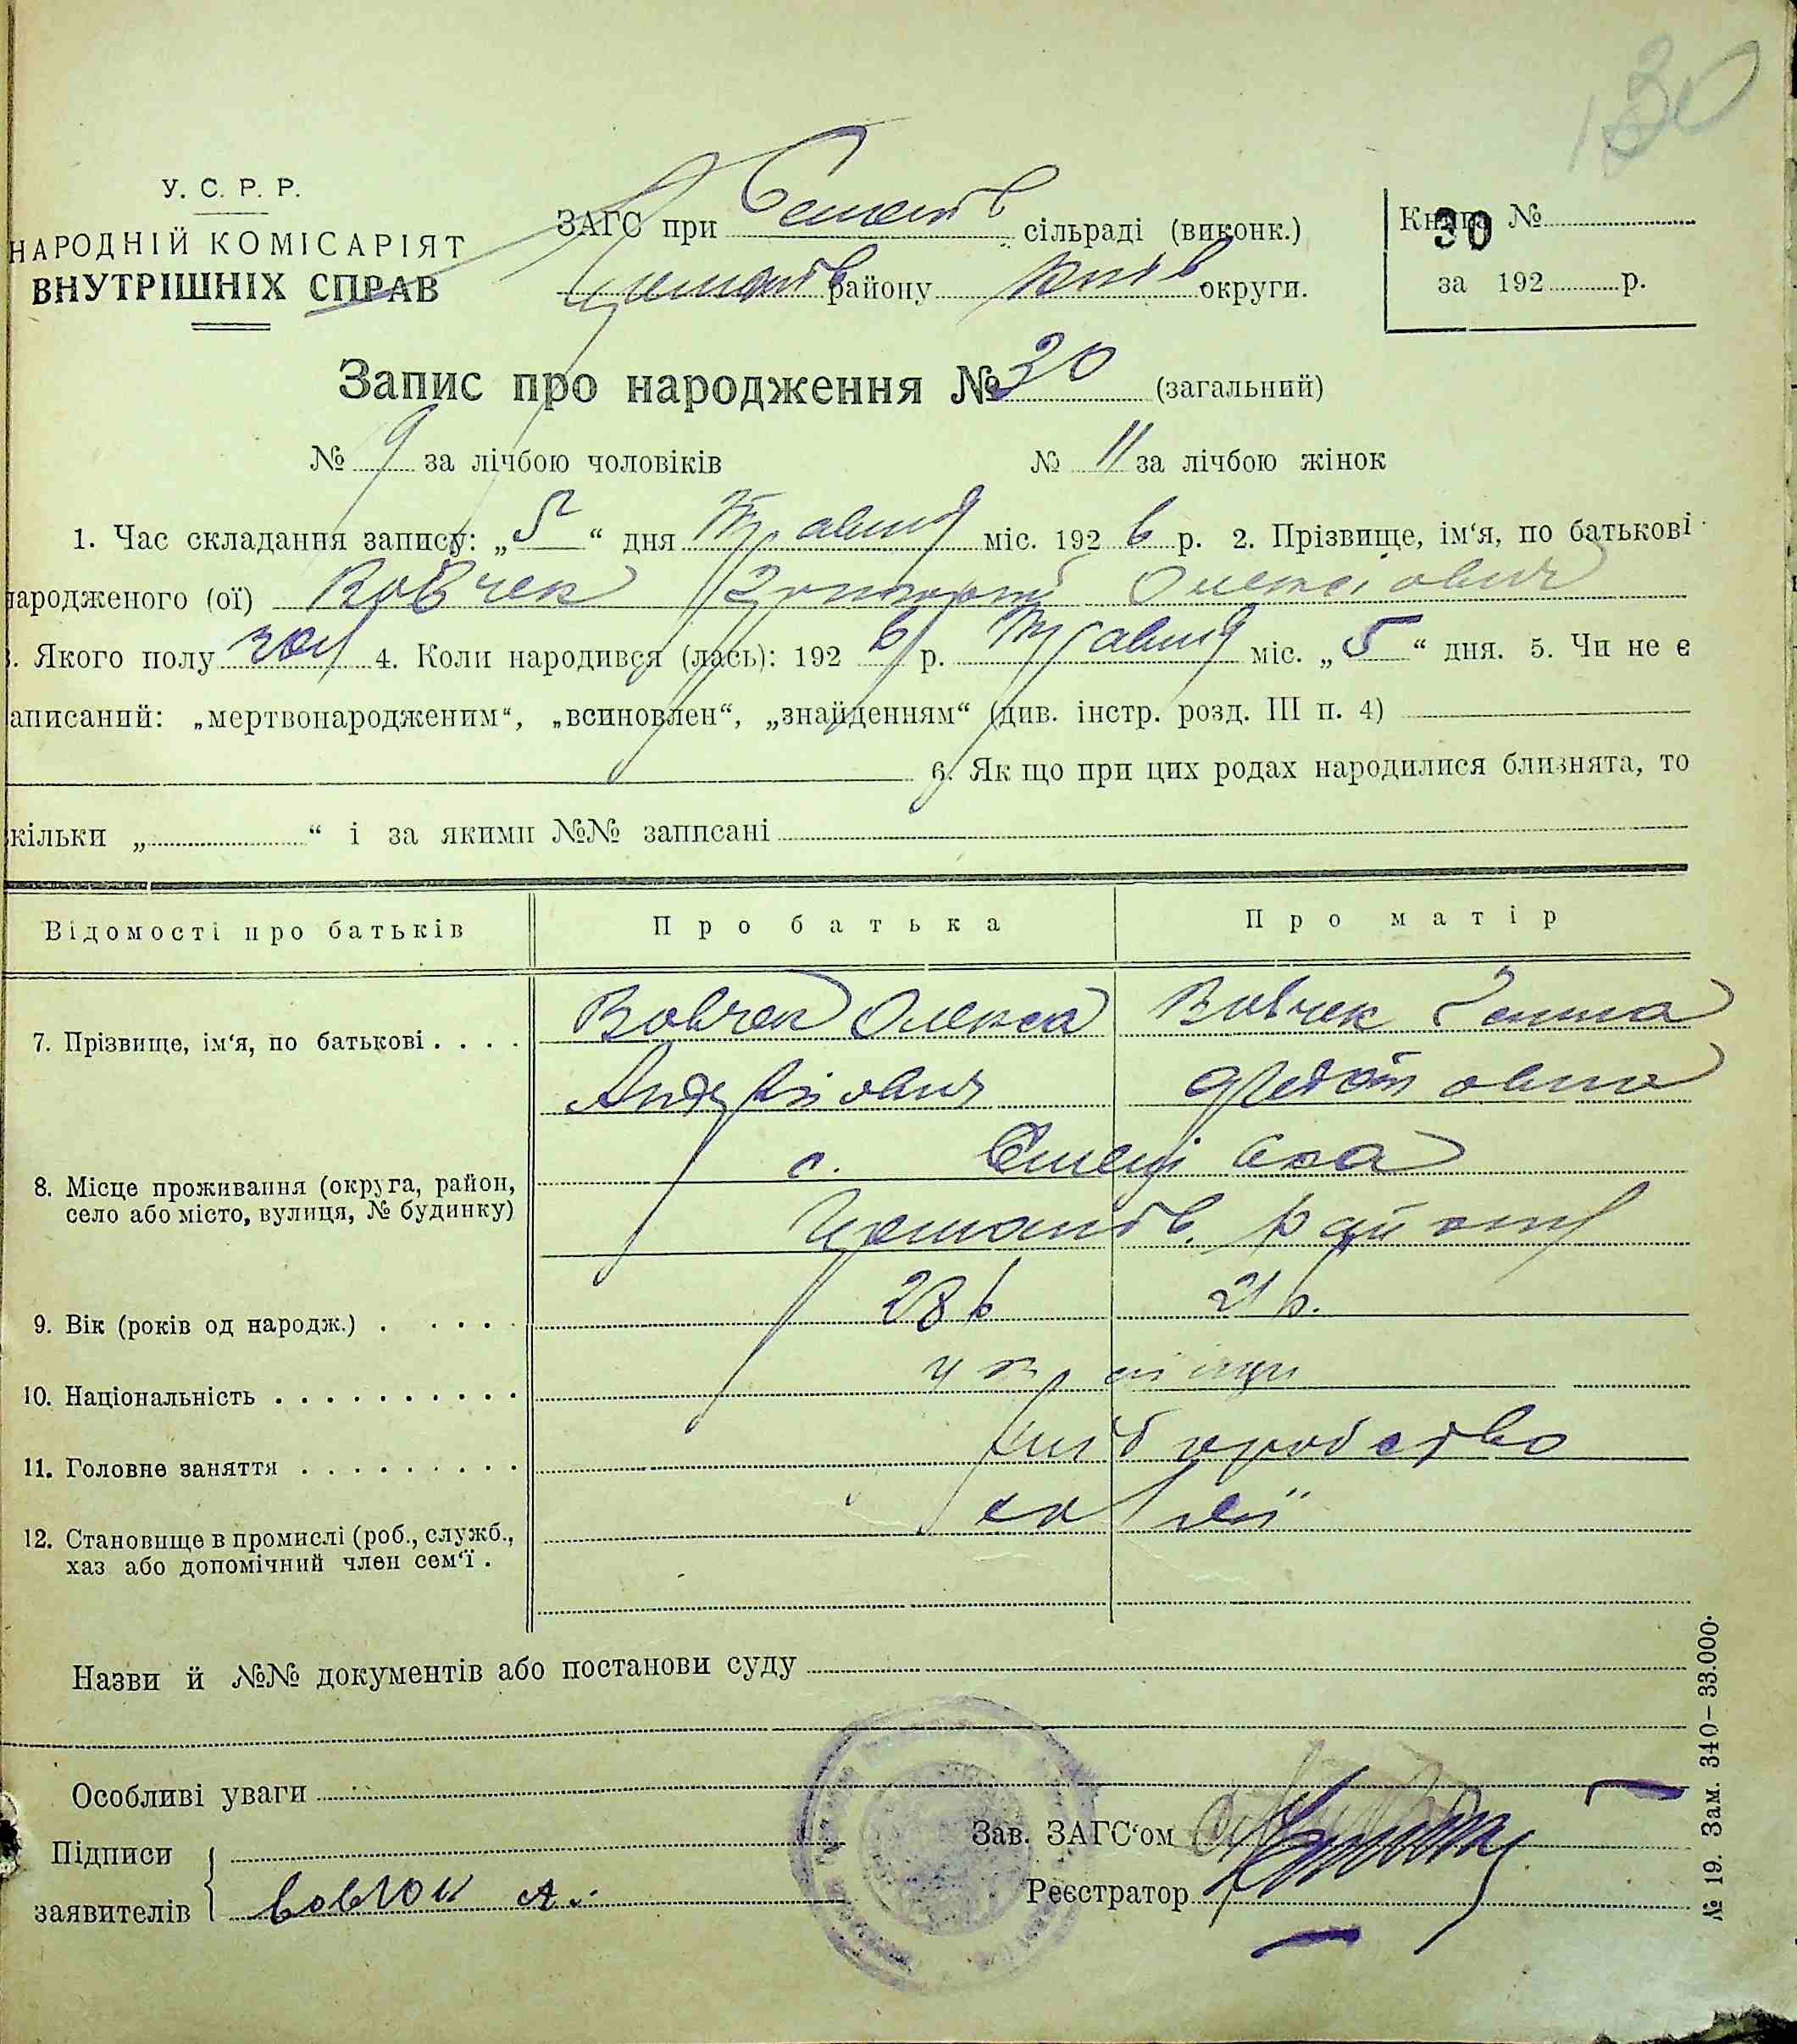 130
У. С. Р. Р.
НАРОДНІЙ КОМІСАРІЯТ
ВНУТРІШНІХ СПРАВ
ЗАГС при сільраді (виконк.)
району Київ округи.
Книга №
30
за 192 р.
Запис про народження № 20 (загальний)
№ 9 за лічбою чоловіків № 11 за лічбою жінок
1. Час складання запису: „5“ дня Травня міс. 1926 р. 2. Прізвище, ім‘я, по батькові
народженого (ої) Вовчек Григорій Олексіович
3. Якого полу чол 4. Коли народився (лась): 1926 р. Травня міс. „5“ дня. 5. Чи не є
записаний: „мертвонародженим“, „всиновлен“, „знайденням“ (див. інстр. розд. III п. 4)
6. Як що при цих родах народилися близнята, то
скільки „ “ і за якими №№ записані
Відомості про батьків Про батька Про матір
7. Прізвище, ім‘я, по батькові . . . . Вовчек Олекса Вовчек Ганна
Андрійович Федотовна
с.
8. Місце проживання (округа, район,
село або місто, вулиця, № будинку) району
9. Вік (років од народж.) . . . . . 28 р 21 р.
10. Національність . . . . . . . . . . українци
11. Головне заняття . . . . . . . . . хліборобство
12. Становище в промислі (роб., служб.,
хаз або допомічний член сем‘ї .
Назви й №№ документів або постанови суду
Особливі уваги
Підписи
заявителів Вовчок А.
Зав. ЗАГС‘ом
Реєстратор
№ 19. Зам. 340–33.000.